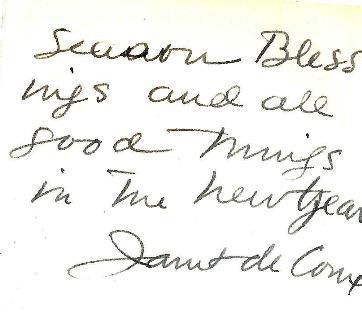 Season Bless
ings and all
good things
in the new year
Janet de